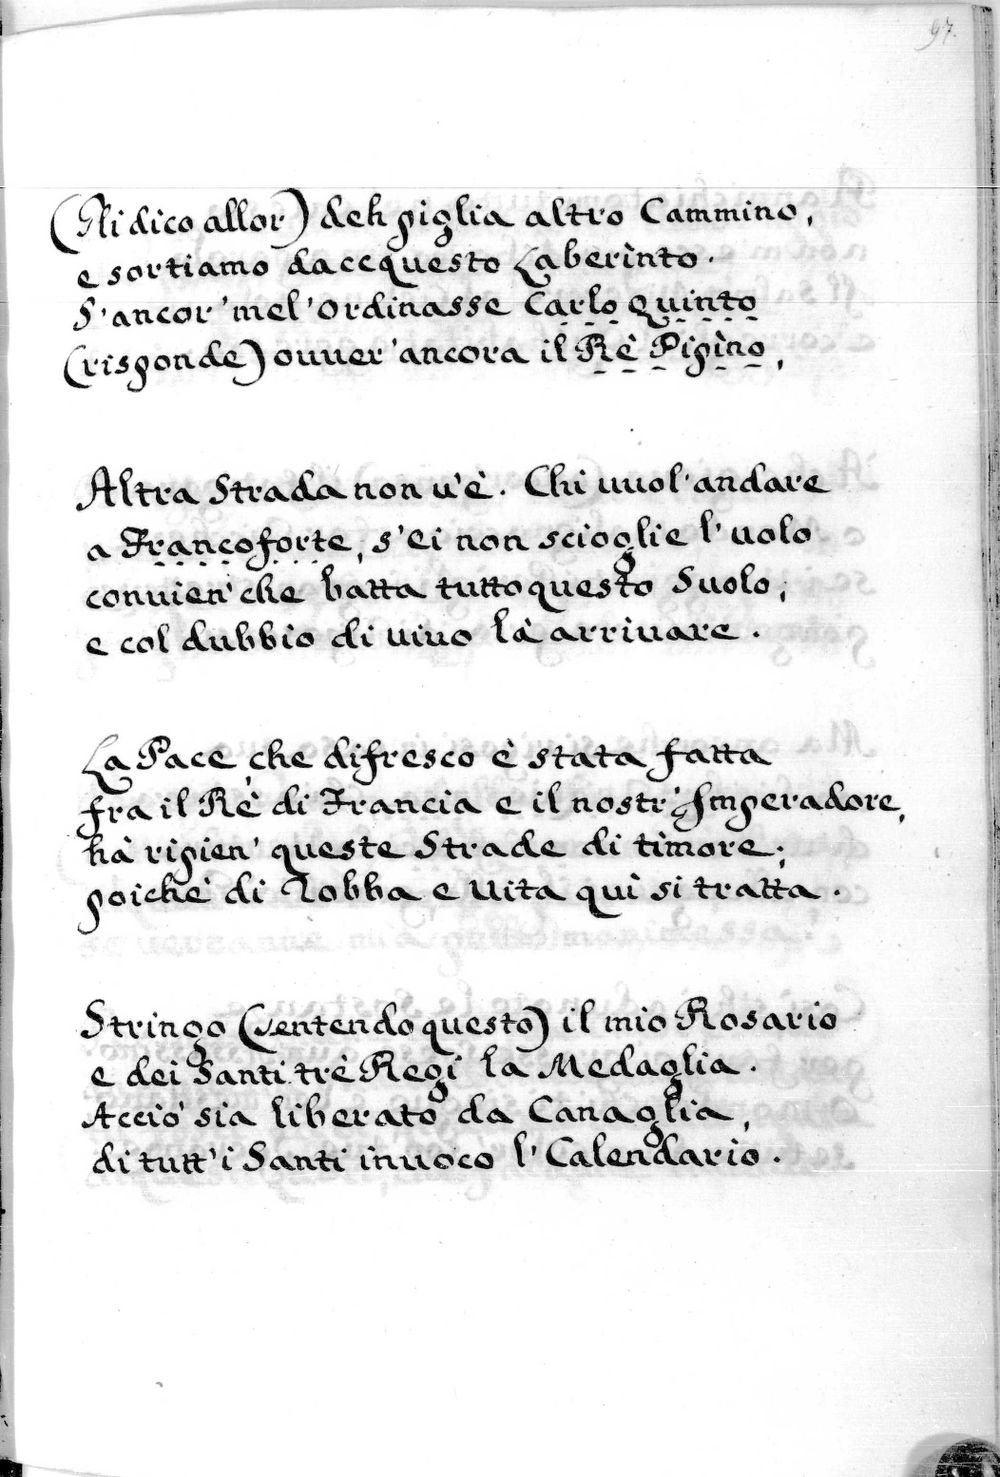 97.
(Gli dico allor) deh piglia altro Cammino,
e sortiamo dacequesto Laberìnto.
S'ancor' mel'ordinasse Carlo Quinto
(risponde) ovver'ancora il Rè Pipìno,
Altra Strada non v'è. Chi vuol'andare
a Francoforte, s'ei non scioglie l'uolo
convien'che batta tutto questo Suolo;
e col dubbio di vivo là arrivare.
La Pace che difresco è stata fatta
fra il Rè di Francia e il nostr'Imperadore,
hà ripien' queste Strade di tìmore;
poichè di Robba e Vita quì si tratta.
Stringo (sentendo questo) il mio Rosario
e dei Santi trè Regi la Medaglia.
Acciò sia liberato da Canaglia,
di tutt'i Santi invoco l'Calendario.